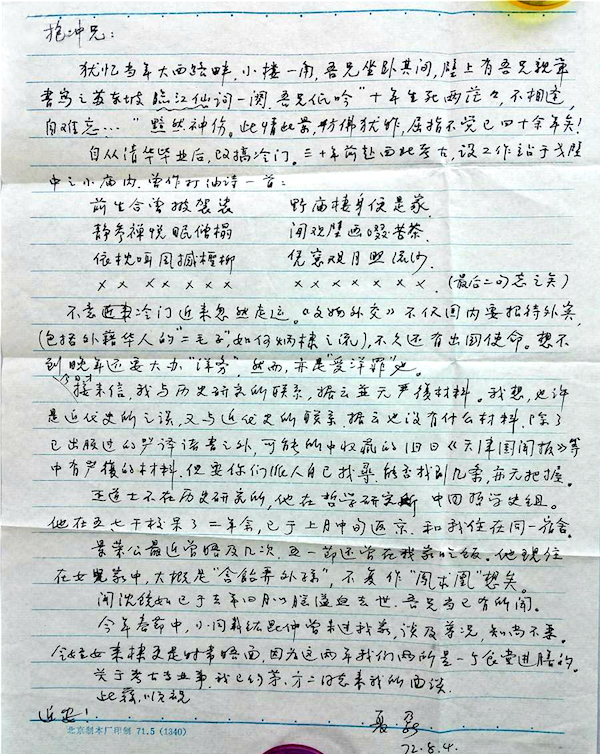 抱冲兄：
犹忆当年大西路畔，小楼一角，吾兄坐卧其间，壁上有吾兄亲笔
书写之苏东坡临江仙词一阕，吾兄低吟“十年生死两茫々，不相逢，
自难忘……”黯然神伤。此情此景，彷佛犹昨，屈指不觉已四十余年矣！
自从清华毕业后，改搞冷门。三十年前赴西北考古，设工作站于戈壁
中之小庙内，曾作打油诗一首：
前生合曾披袈裟 野庙栖身便是家
静参禅悦眠僧榻 闲观壁画啜苦茶
依枕听风撼柽柳 凭窗观月照流沙
××××××× ×××××××（最后二句忘之矣）
不意近来冷门近来忽然走运。《文物外交》不仅国内要招待外宾，
（包括外籍华人的“二毛子”如何炳棣之流），不久还有出国使命。想不
到晚年还要大办“洋务”，然而，亦是“受洋罪”也。
今日才
接来信，我与历史研究所联系，据云并无严複材料。我想，也许
是近代史所之误，又与近代史所联系，据云也没有什么材料，除了
已出版过的严译诸书之外，可能所中收藏的旧日《天津国闻报》等
中有严複的材料，但要你们派人自己找寻，能否找到几条，亦无把握。
王道士不在历史研究所，他在哲学研究所中国哲学史组。
他在五七干校呆了二年余，已于上月中旬返京，和我住在同一宿舍。
景荣公最近曾晤及几次，五一节还曾在我家吃饭。他现住
在女儿家中，大概是“含饴弄外孙”，不复作“凤求凰”想矣。
闻沈镜如已于去年四月以脑溢血去世，吾兄当已有所闻。
今年春节中，小同乡 曾来过找我，谈及尊况，知尚不恶。
令侄女 更是时常晤面，因为这两年我们两所是一个食堂进膳的。
关于考古专业事，我已约 二同志来我所面谈。
此覆，順祝
近安！
夏鼐
72.8.4.
北京制本厂印制 71.5 (1340)